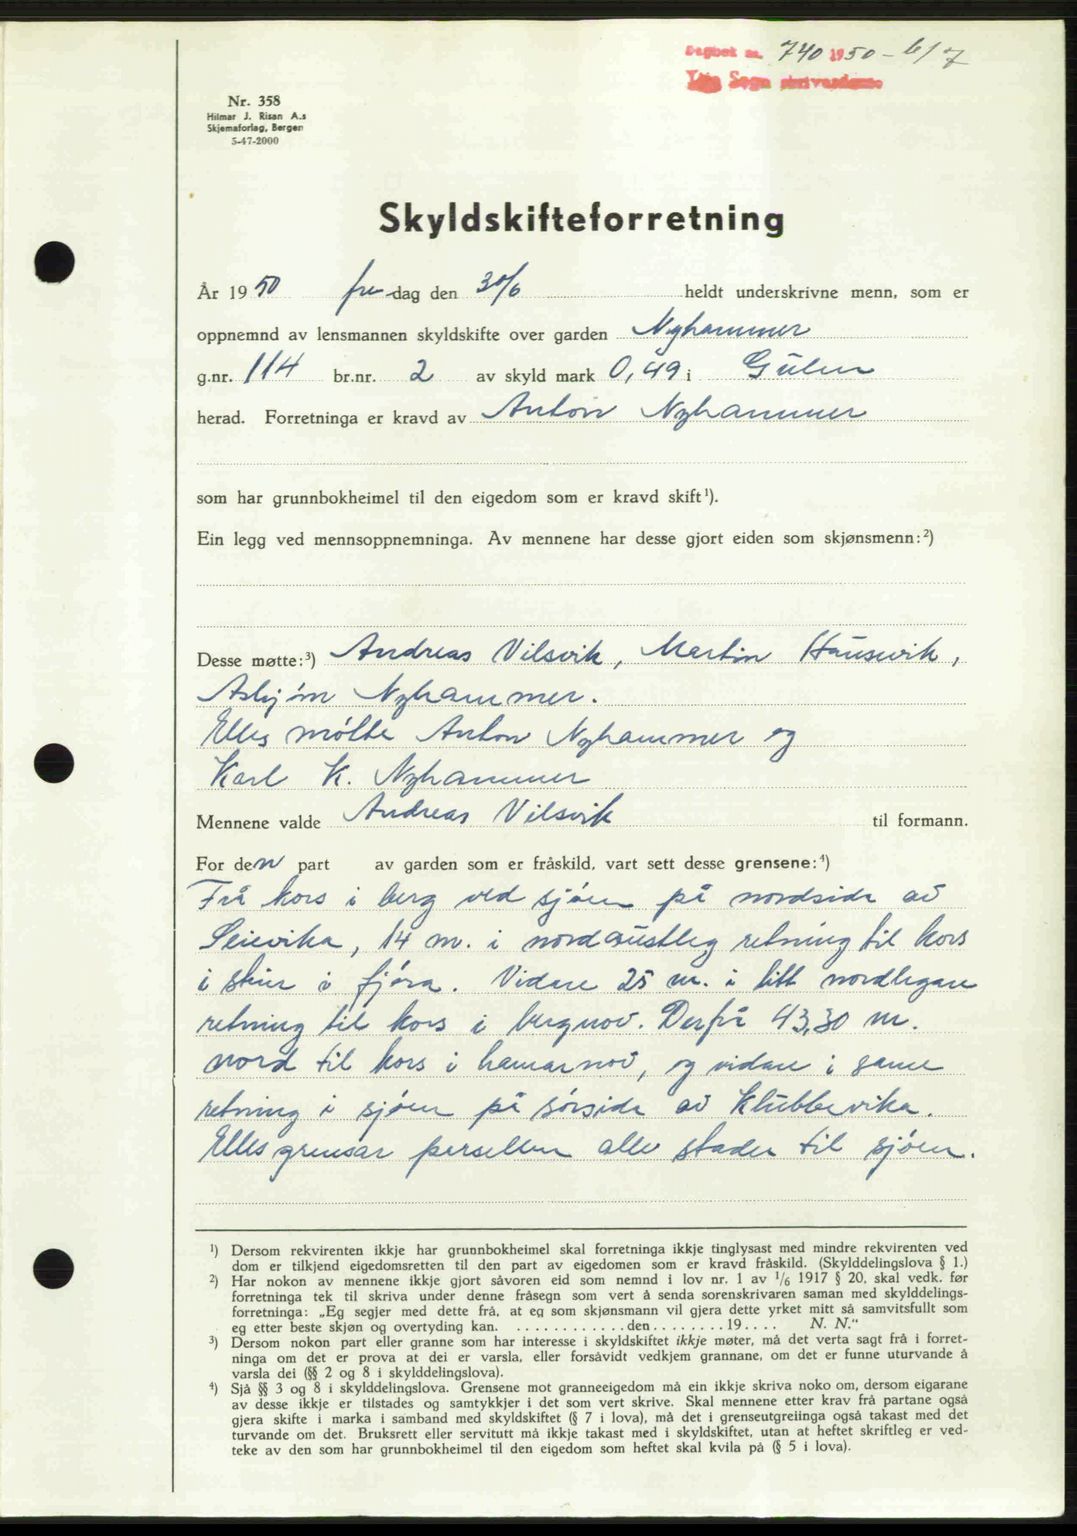 Dagbok nr. 740 1950 - 6/7
Ytre Sogn
Nr. 358
Hilmar J. Risan A.s
Skjemaforlag, Bergen
5-47-2000
Skyldskifteforretning
År 1950 fredag den 30/6 heldt underskrivne menn, som er
oppnemnd av lensmannen skyldskifte over garden Nyhammer
g.nr. 114 br.nr. 2 av skyld mark 0,49 i Gulen
herad. Forretninga er kravd av Anton Nyhammer
som har grunnbokheimel til den eigedom som er kravd skift¹).
Ein legg ved mennsoppnemninga. Av mennene har desse gjort eiden som skjønsmenn:²)
Desse møtte:³) Andreas Vilsvik, Martin Hausvik,
Asbjørn Nyhammer.
Elles møtte Anton Nyhammer og
Karl K. Nyhammer
Mennene valde Andreas Vilsvik til formann.
For den part av garden som er fråskild, vart sett desse grensene:⁴)
Frå kors i berg ved sjøen på nordside av
Seievika, 14 m. i nordaustleg retning til kors
i stein i fjøra. Vidare 25 m. i litt nordlegare
retning til kors i bergnov. Derfrå 43,30 m.
nord til kors i hamarnov, og vidare i same
retning i sjøen på sørside av Klubbevika.
Elles grensar parsellen alle stader til sjøen.
¹) Dersom rekvirenten ikkje har grunnbokheimel skal forretninga ikkje tinglysast med mindre rekvirenten ved
dom er tilkjend eigedomsretten til den part av eigedomen som er kravd fråskild. (Skylddelingslova § 1.)
²) Har nokon av mennene ikkje gjort såvoren eid som nemnd i lov nr. 1 av 1/6 1917 § 20, skal vedk. før
forretninga tek til skriva under denne fråsegn som vert å senda sorenskrivaren saman med skylddelings-
forretninga: „Eg segjer med dette frå, at eg som skjønsmann vil gjera dette yrket mitt så samvitsfullt som
eg etter beste skjøn og overtyding kan. ............den........19.... N. N.“
³) Dersom nokon part eller granne som har interesse i skyldskiftet ikkje møter, må det verta sagt frå i forret-
ninga om det er prova at dei er varsla, eller forsåvidt vedkjem grannane, om det er funne uturvande å
varsla dei (§§ 2 og 8 i skylddelingslova).
⁴) Sjå §§ 3 og 8 i skylddelingslova. Grensene mot granneeigedom må ein ikkje skriva noko om, dersom eigarane
av desse ikkje er tilstades og samtykkjer i det som vert skrive. Skal mennene etter krav frå partane også
gjera skifte i marka i samband med skyldskiftet (§ 7 i lova), må det i grenseutgreiinga også takast med det
turvande om det. Bruksrett eller servitutt må ikkje takast med i skyldskiftet, utan at heftet skriftleg er ved-
teke av den som har grunnbokheimel til den eigedom som heftet skal kvila på (§ 5 i lova).